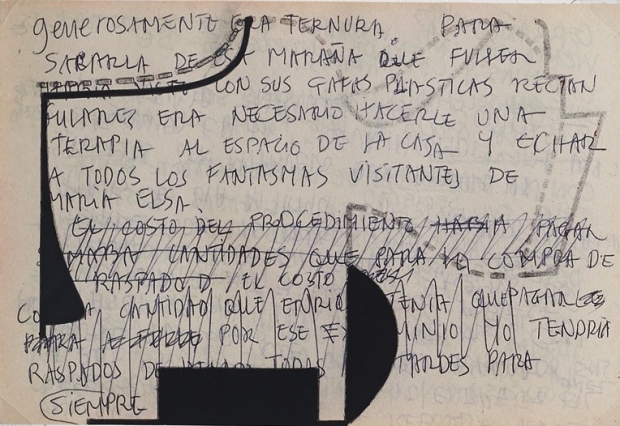 generosamente la TERNURA. PARA
SACARLA DE ESA MARAÑA QUE FULLER
HABÍA VISTO CON SUS GAFAS PLASTICAS RECTAN
GULARES ERA NECESARIO HACERLE UNA
TERAPIA AL ESPACIO DE LA CASA Y ECHAR
A TODOS LOS FANTASMAS VISITANTES DE
MARIA ELSA.
EL COSTO DEL PROCEDIMIENTO HABIA PAGAR
CANTIDADES QUE PARA LA COMPRA DE
RASPADO D EL COSTO
CANTIDAD QUE TENIA QUE PAGAR
PARA POR ESE MINIO YO TENDRIA
RASPADOS DE TODAS TARDES PARA
SIEMPRE